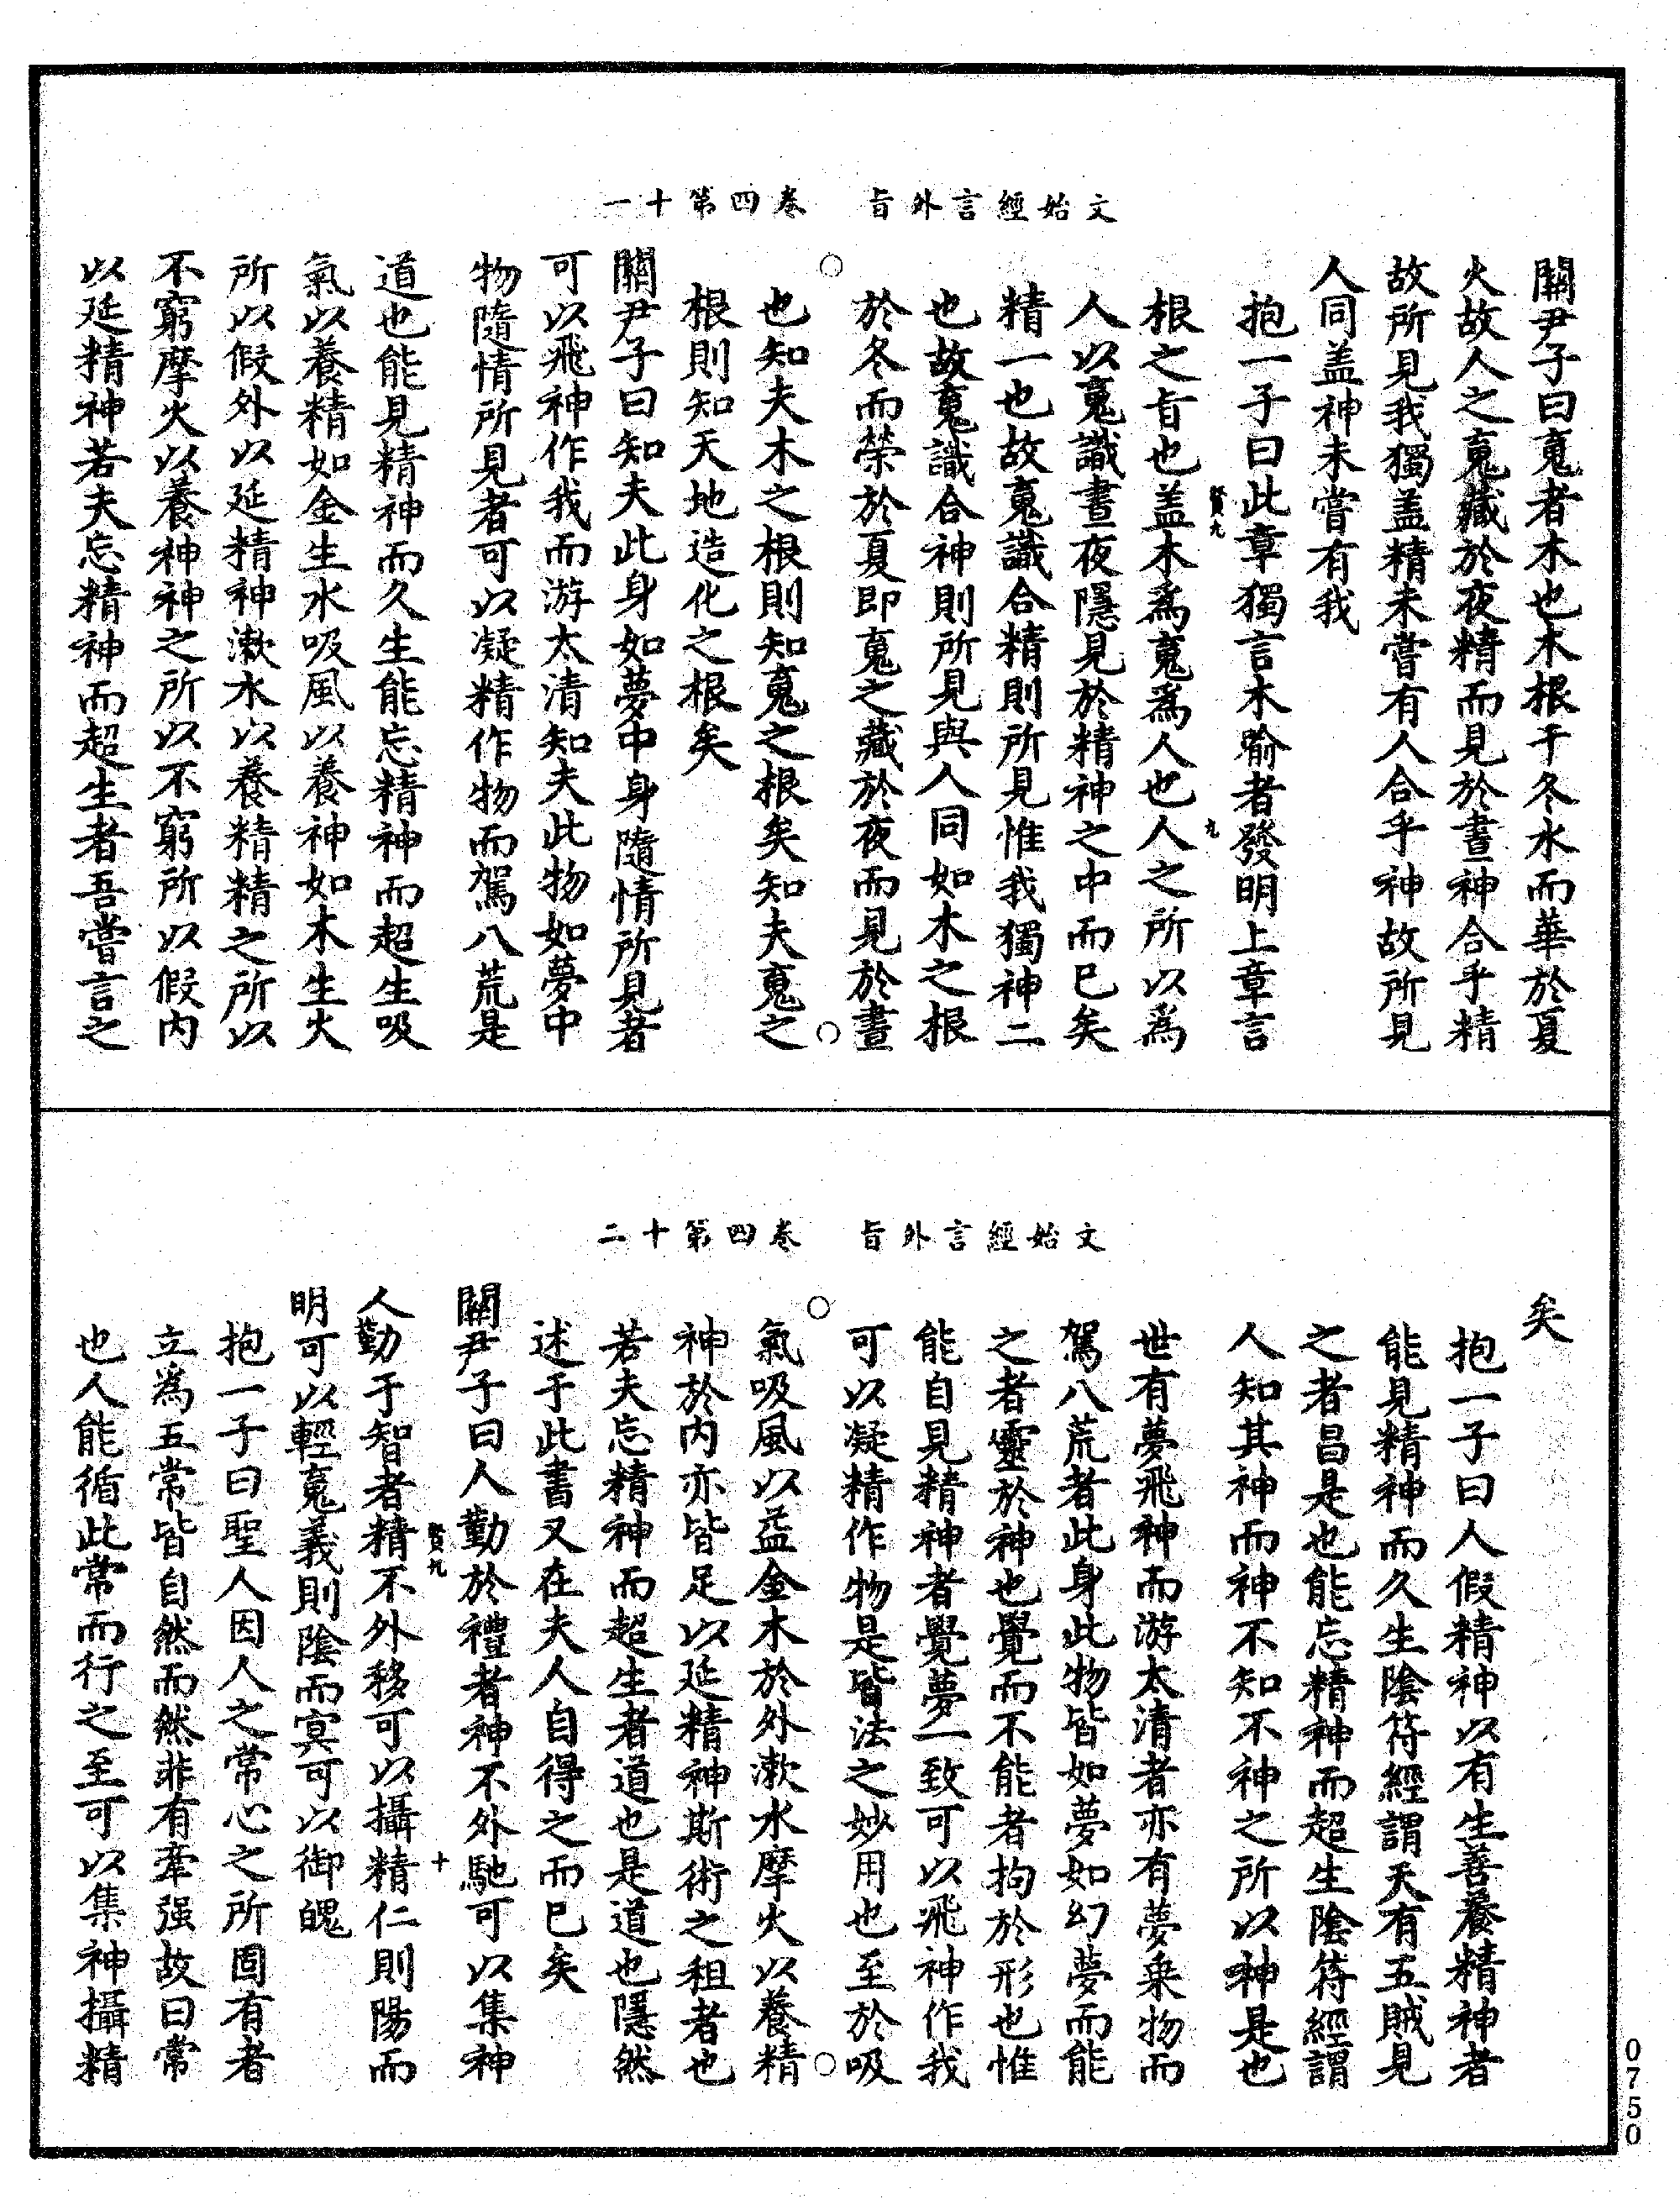 文始經言外旨　卷四第十一
關尹子曰䰟者木也木根于冬水而華於夏
火故人之䰟藏於夜精而見於晝神合乎精
故所見我獨盖精未嘗有人合乎神故所見
人同盖神未嘗有我
抱一子曰此章獨言木喻者發明上章言
賢九
九
根之旨也盖木為䰟為人也人之所以為
人以䰟識晝夜隱見於精神之中而已矣
精一也故䰟識合精則所見惟我獨神二
也故䰟識合神則所見與人同如木之根
於冬而榮於夏即䰟之藏於夜而見於晝
也知夫木之根則知䰟之根矣知夫䰟之
根則知天地造化之根矣
關尹子曰知夫此身如夢中身隨情所見者
可以飛神作我而游太清知夫此物如夢中
物隨情所見者可以凝精作物而駕八荒是
道也能見精神而久生能忘精神而超生吸
氣以養精如金生水吸風以養神如木生火
所以假外以延精神漱水以養精精之所以
不窮摩火以養神神之所以不窮所以假內
以延精神若夫忘精神而超生者吾嘗言之
文始經言外旨　卷四第十二
矣
抱一子曰人假精神以有生善養精神者
能見精神而久生陰符經謂天有五賊見
之者昌是也能忘精神而超生陰符經謂
人知其神而神不知不神之所以神是也
世有夢飛神而游太清者亦有夢乗物而
駕八荒者此身此物皆如夢如幻夢而能
之者靈於神也覺而不能者拘於形也惟
能自見精神者覺夢一致可以飛神作我
可以凝精作物是皆法之妙用也至於吸
氣吸風以益金木於外漱水摩火以養精
神於內亦皆足以延精神斯術之粗者也
若夫忘精神而超生者道也是道也隱然
述于此書又在夫人自得之而已矣
關尹子曰人勤於禮者神不外馳可以集神
賢九
十
人勤于智者精不外移可以攝精仁則陽而
明可以輕䰟義則陰而冥可以御魄
抱一子曰聖人因人之常心之所固有者
立為五常皆自然而然非有牽强故曰常
也人能循此常而行之至可以集神攝精
0750